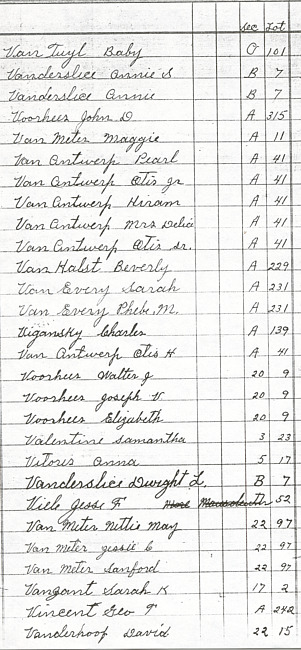 Sec Lot
Van Tuyl Baby O 101
Vanderslice Annie S B 7
Vanderslice Annie B 7
Voorhees John D. A 315
Van Meter Maggie A 11
Van Antwerp Pearl A 41
Van Antwerp Otis Jr A 41
Van Antwerp Hiram A 41
Van Antwerp Mrs Delia A 41
Van Antwerp Otis Sr. A 41
Van Halst Beverly A 229
Van Every Sarah A 231
Van Every Phebe, M. A 231
Vigansky Charles A 139
Van Antwerp Otis H A 41
Voorhees Walter J 20 9
Voorhees Joseph V. 20 9
Voorhees Elizabeth 20 9
Valentine Samantha 3 23
Vitoris Anna 5 17
Vanderslice Dwight L. B 7
Viele Jesse F Mausoleum 52
Van Meter Nettie May 22 97
Van Meter Jessie C 22 97
Van Meter Sanford 22 97
Vangant Sarah K 17 2
Vincent Geo T A 242
Vanderhoof David 22 15